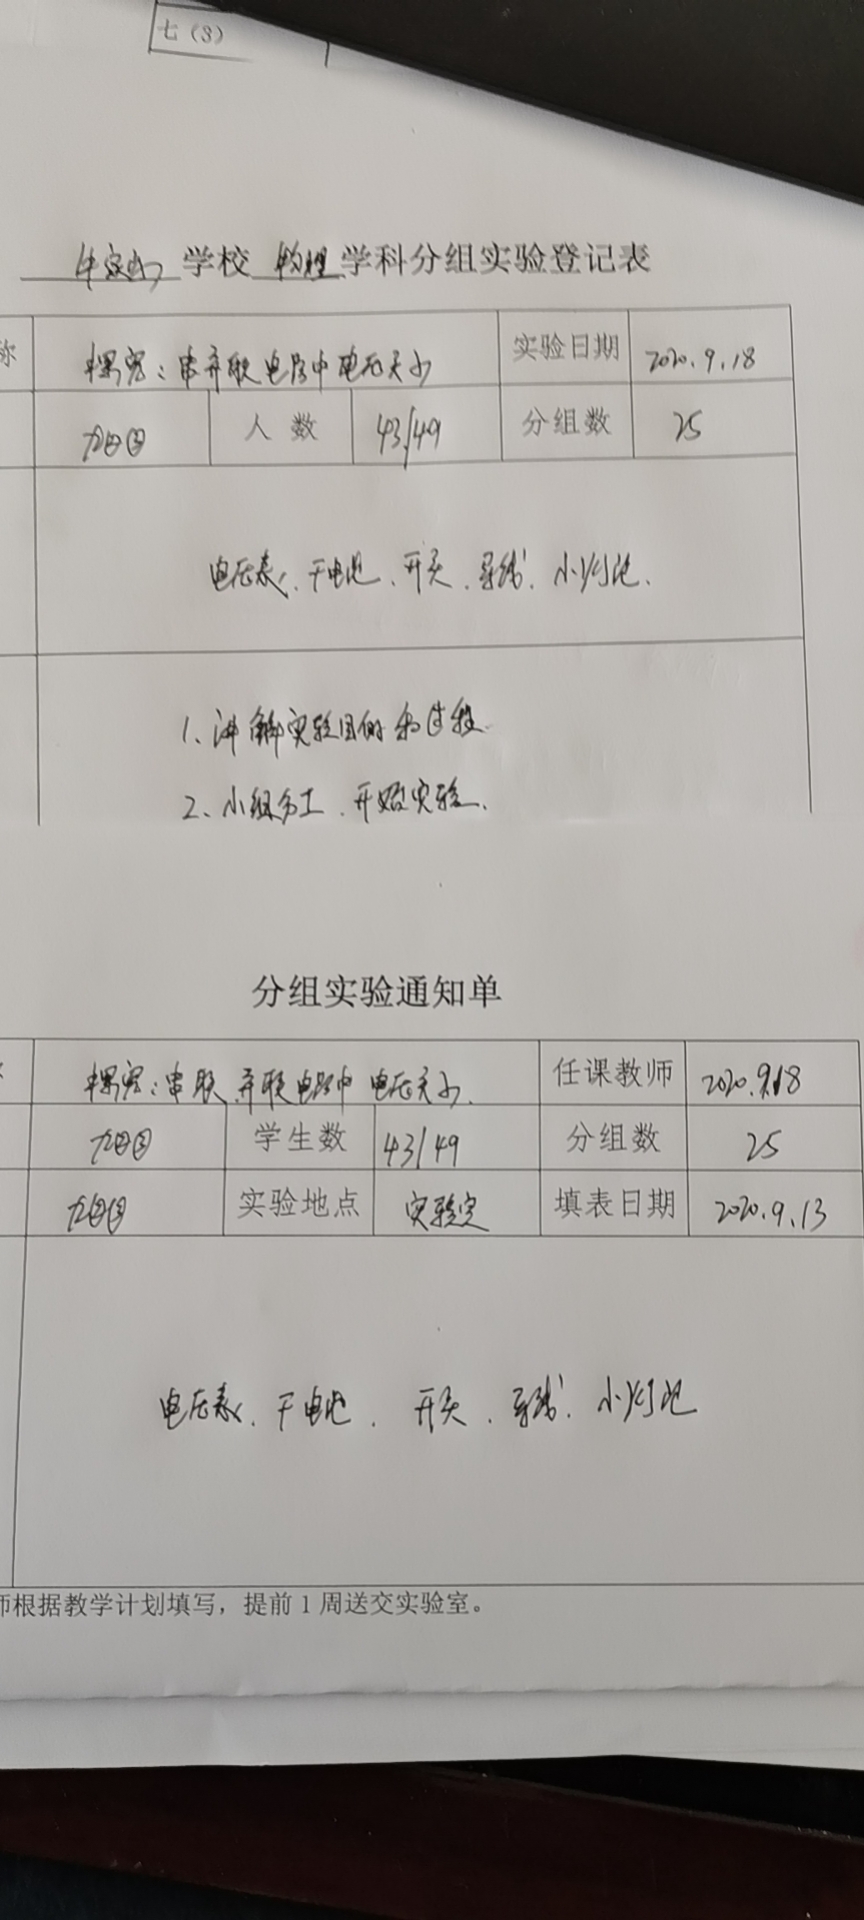 七（3）
学校 物理 学科分组实验登记表
称 探究：串并联电路中电压关系 实验日期 2020.9.18
九①② 人数 43/49 分组数 25
电压表、干电池、开关、导线、小灯泡.
1、讲解实验目的和过程
2、小组分工、开始实验.
分组实验通知单
探究：串联、并联电路中电压关系. 任课教师 2020.9.18
学生数 43/49 分组数 25
实验地点 实验室 填表日期 2020.9.13
电压表、干电池、开关、导线、小灯泡
师根据教学计划填写，提前1周送交实验室。